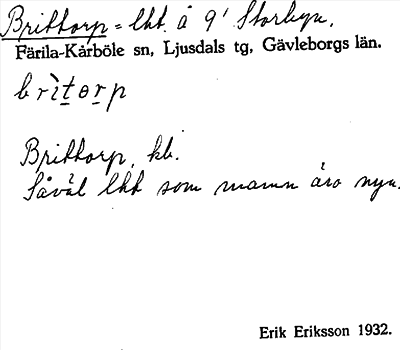 Brittorp = lht å 9' Storhyn.
Färila-Kårböle sn, Ljusdals tg, Gävleborgs län.
brìtorp
Brittorp, kb.
Såväl lht som namn äro nya.
Erik Eriksson 1932.